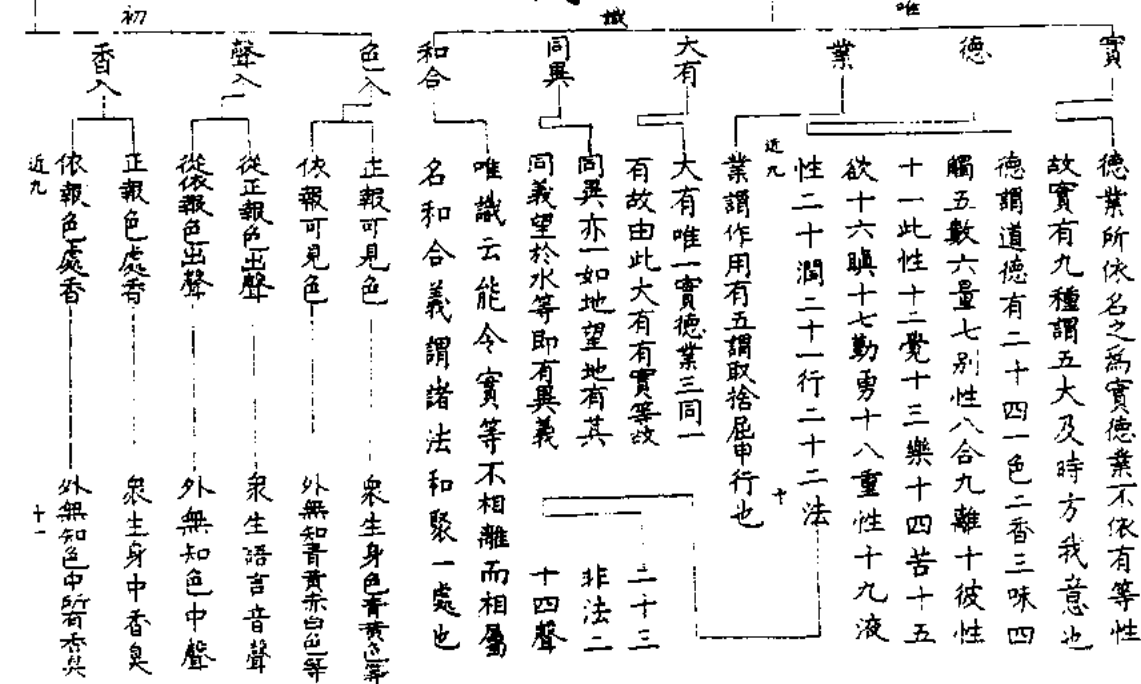 唯
識
初
實
德業所依名之爲實德業不依有等性
故實有九種謂五大及時方我意也
德
德謂道德有二十四一色二香三味四
觸五數六量七別性八合九離十彼性
十一此性十二覺十三樂十四苦十五
欲十六瞋十七勤勇十八重性十九液
性二十潤二十一行二十二法
二十三
非法二
十四聲
業
業謂作用有五謂取捨屈申行也
近九
十
大有
大有唯一實德業三同一
有故由此大有有實等故
同異
同異亦一如地望地有其
同義望於水等即有異義
和合
唯識云能令實等不相離而相屬
名和合義謂諸法和聚一處也
色入
正報可見色
衆生身色青黃色等
依報可見色
外無知青黃赤白色等
聲入
從正報色出聲
衆生語言音聲
從依報色出聲
外無知色中聲
香入
正報色處香
衆生身中香臭
依報色處香
外無知色中所有香臭
近九
十一